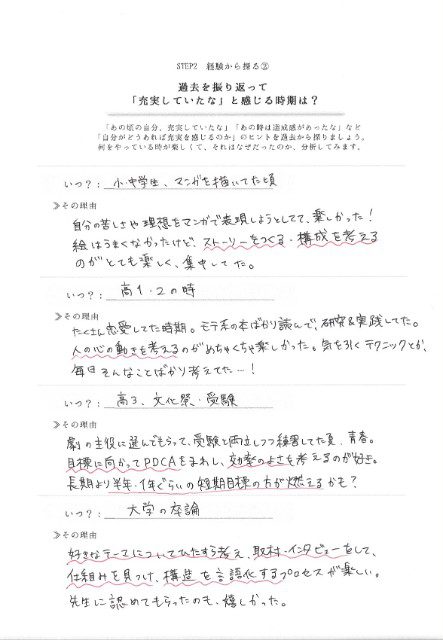 STEP2 経験から探る②
過去を振り返って
「充実していたな」と感じる時期は？
「あの頃の自分、充実していたな」「あの時は達成感があったな」など
「自分がどうあれば充実を感じるのか」のヒントを過去から探りましょう。
何をやっている時が楽しくて、それはなぜだったのか、分析してみます。
いつ？： 小・中学生、マンガを描いてた頃
≫その理由
自分の苦しさや理想をマンガで表現しようとしてて、楽しかった！
絵はうまくなかったけど、ストーリーをつくる・構成を考える
のがとても楽しく、集中してた。
いつ？： 高1・2の時
≫その理由
たくさん恋愛してた時期。モテ系の本ばかり読んで、研究&実践してた。
人の心の動きを考えるのがめちゃくちゃ楽しかった。気を引くテクニックとか、
毎日そんなことばかり考えてた…！
いつ？： 高3、文化祭・受験
≫その理由
劇の主役に選んでもらって、受験と両立しつつ練習してた頃。青春。
目標に向かってPDCAをまわし、効率のよさを考えるのが好き。
長期より半年・1年ぐらいの短期目標の方が燃えるかも？
いつ？： 大学の卒論
≫その理由
好きなテーマについてひたすら考え、取材・インタビューをして、
仕組みを見つけ、構造を言語化するプロセスが楽しい。
先生に認めてもらったのも、嬉しかった。